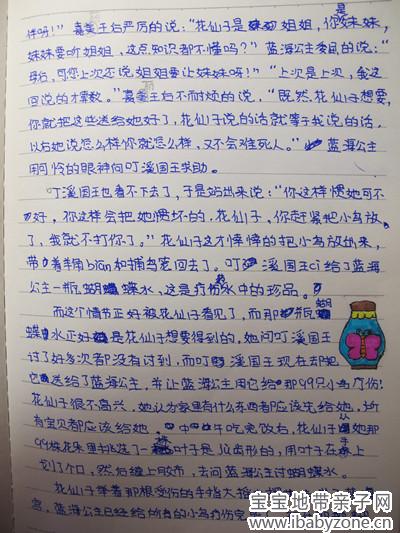 伴吗！”嘉美王后严厉的说：“花仙子是姐姐，你是妹妹，
妹妹要听姐姐，这点知识都不懂吗？”蓝海公主委屈的说：“
母后，可您上次还说姐姐要让妹妹呀！”“上次是上次，我这
回说的才算数。”嘉美王后不耐烦的说，“既然花仙子想要，
你就把这些送给她好了，花仙子说的话就等于我说的话，
以后她说怎么样你就怎么样，又不会难死人。”蓝海公主
用可怜的眼神向叮溪国王求助。
叮溪国王也看不下去了，于是站出来说：“你这样惯她可不
好，你这样会把她惯坏的，花仙子，你赶紧把小鸟放
了，我就不打你了。”花仙子这才悻悻的把小鸟放出来，
带着羊角bian和捕鸟笼回去了。叮溪国王ci给了蓝海
公主一瓶蝴蝶水，这是疗伤药水中的珍品。
而这个情节正好被花仙子看见了，而那瓶蝴
蝶水正好是花仙子想要得到的，她问叮溪国王
讨了好多次都没有讨到，而叮溪国王现在却把
它送给了蓝海公主，并让蓝海公主用它给那99只小鸟疗伤！
花仙子很不高兴，她认为家里有什么东西都应该先给她，所
有宝贝都应该给她。中午吃完饭后，花仙子从她那
99株花朵里挑选了一株叶子是锯齿形的，用叶子在手上
划了个口，然后缠上胶布，去问蓝海公主讨蝴蝶水。
花仙子举着那根受伤的手指大摇
宫，蓝海公主已经给所有的小鸟疗伤完
宝宝地带亲子网
www.ibabyzone.cn